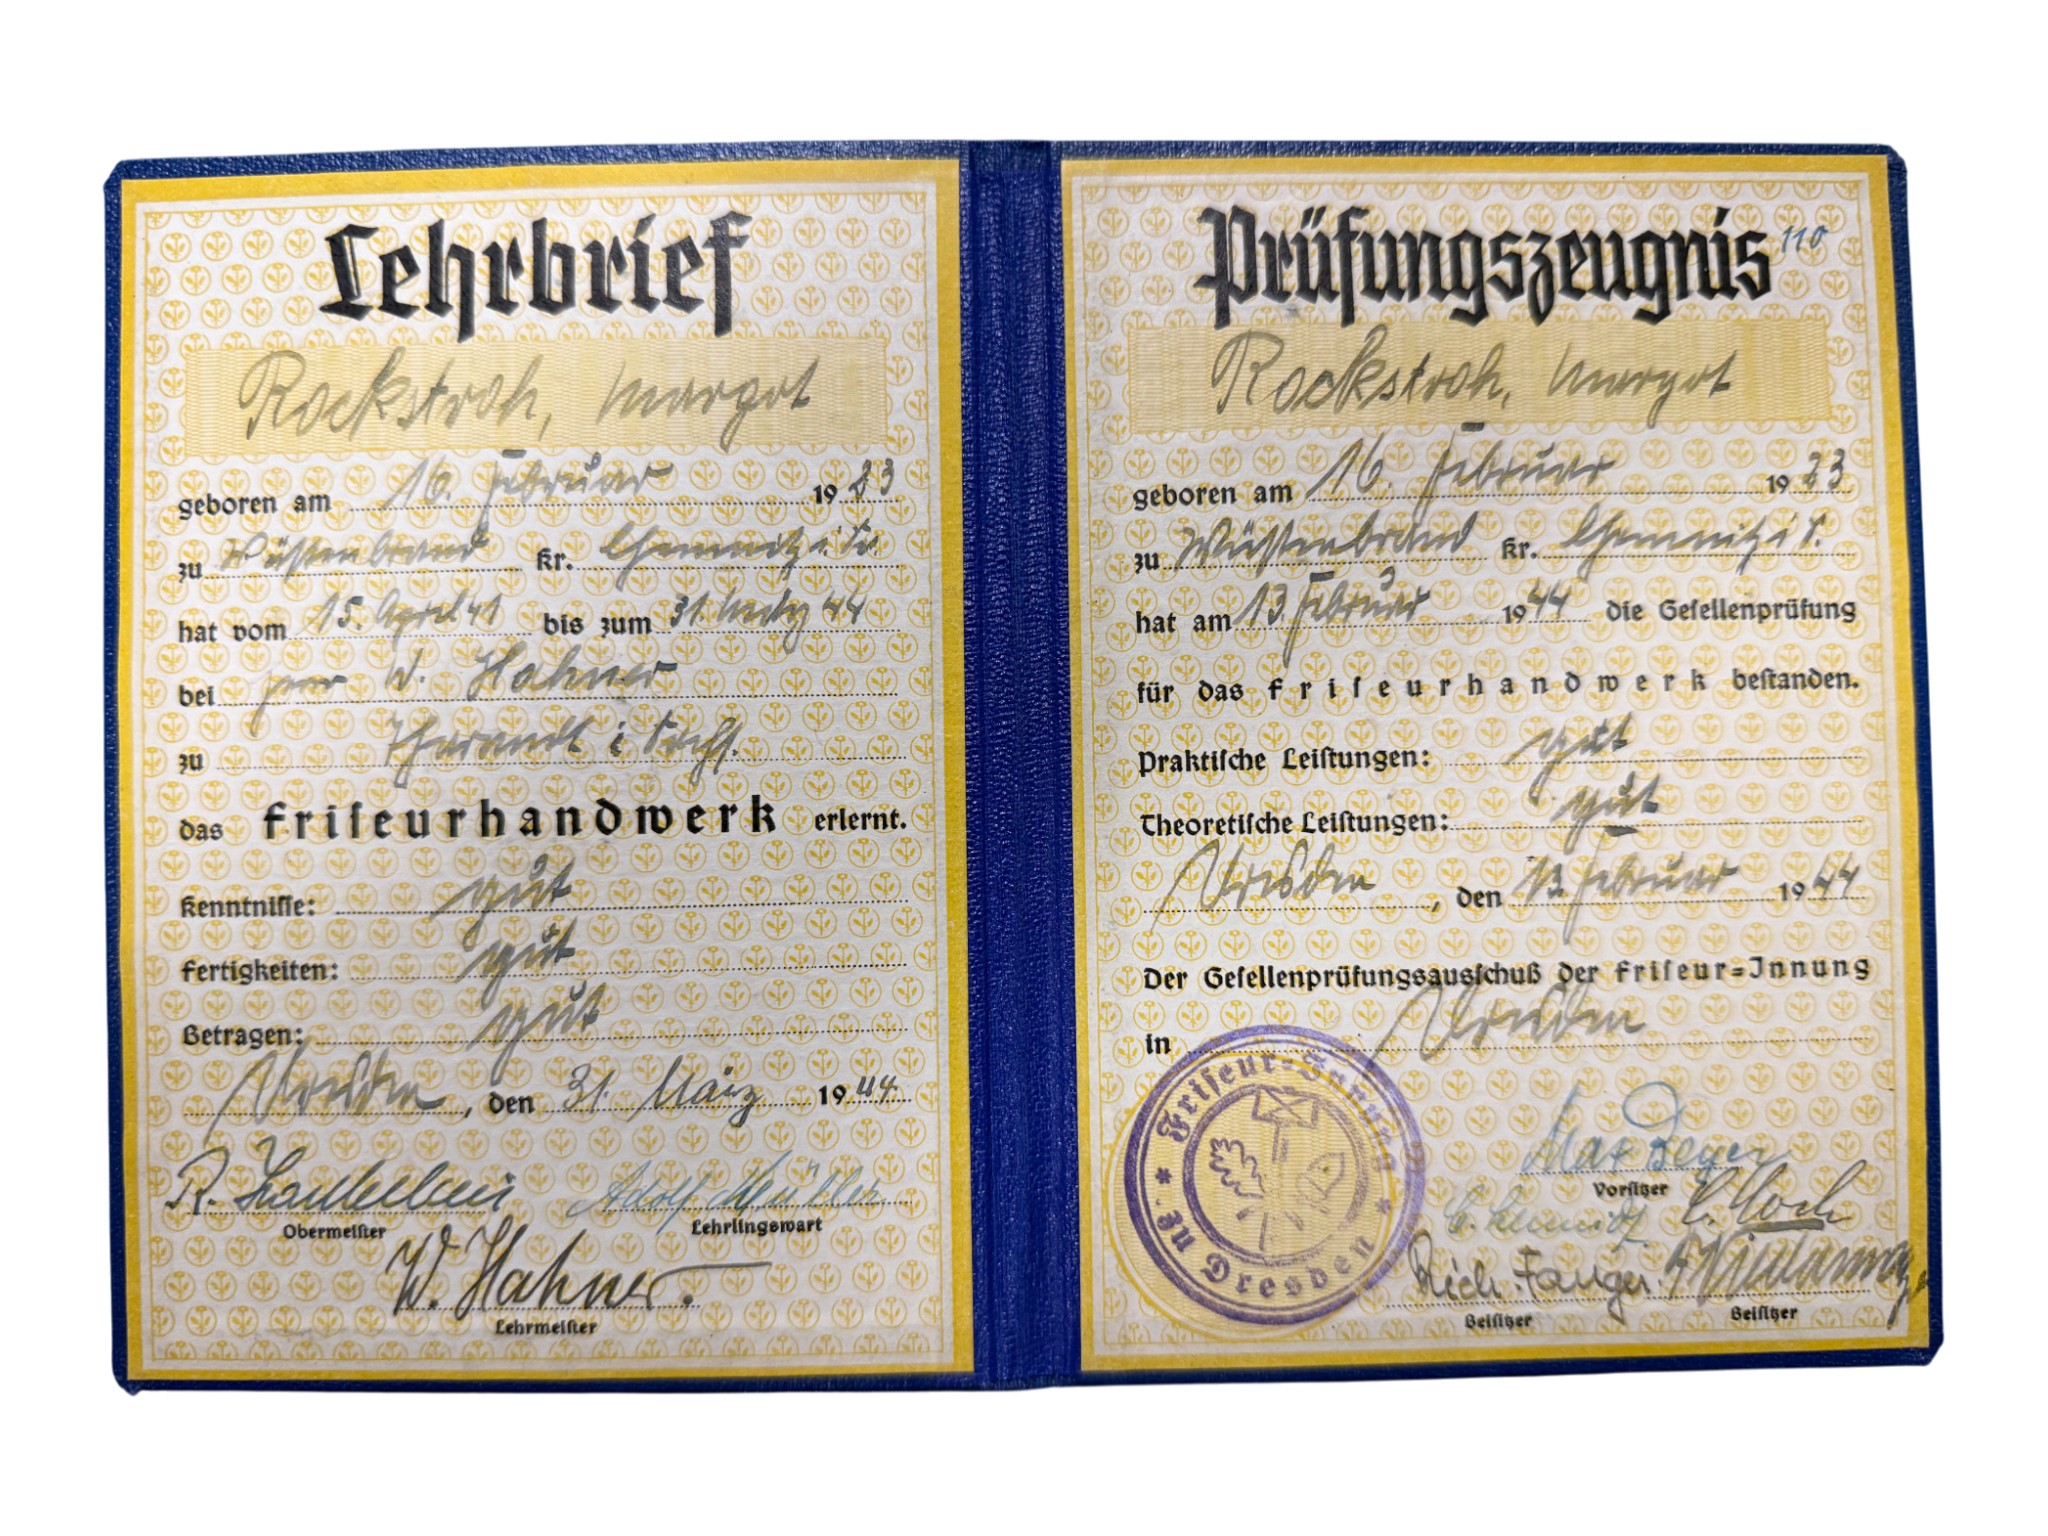 Lehrbrief
Rockstroh, Margot
geboren am 16. Februar 1923
zu Wüstenbrand Kr. Chemnitz i. Sa.
hat vom 15. April 41 bis zum 31. März 44
bei Herr W. Hahner
zu Tharandt i. Sachs.
das Friseurhandwerk erlernt.
Kenntnisse: gut
Fertigkeiten: gut
Betragen: gut
Dresden, den 31. März 1944.
R.
Adolf Müller
Obermeister
Lehrlingswart
W. Hahner.
Lehrmeister
Prüfungszeugnis 110
Rockstroh, Margot
geboren am 16. Februar 1923
zu Wüstenbrand Kr. Chemnitz i. S.
hat am 13. Februar 1944 die Gesellenprüfung
für das Friseurhandwerk bestanden.
Praktische Leistungen: gut
Theoretische Leistungen: gut
Dresden, den 13. Februar 1944
Der Gesellenprüfungsausschuß der Friseur=Innung
in Dresden
Friseur=Innung * zu Dresden *
Max Beyer
Vorsitzer
Schmidt
Koch
Rich.
Beisitzer
Beisitzer